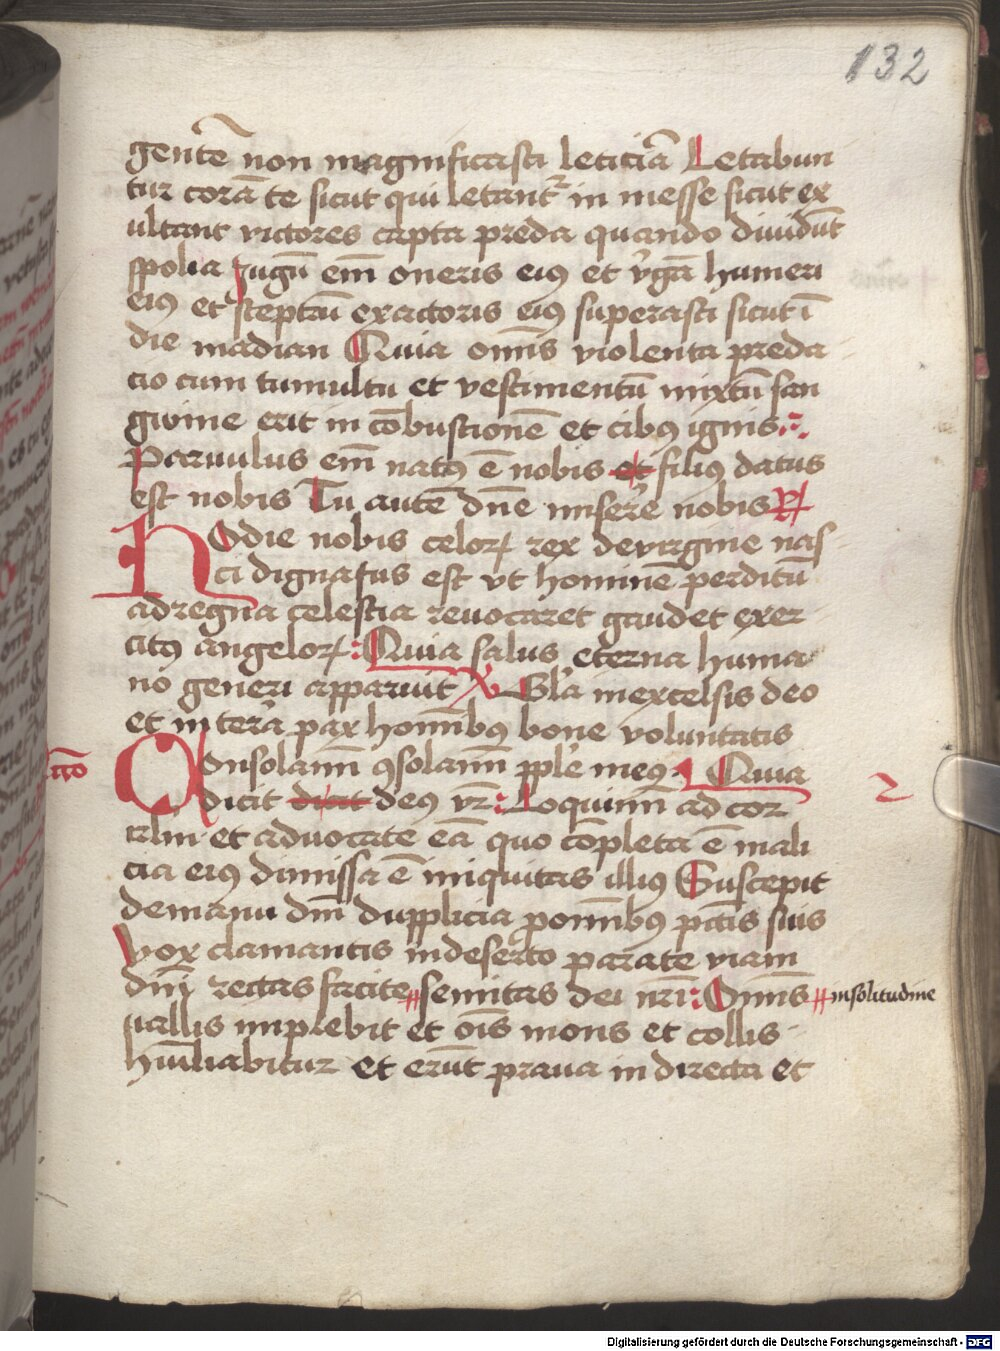 132
gentē non magnificasti leticiā Letabun
tur corā te sicut qui letant᷑ in messe sicut ex
ultant victores capta preda quando diuidūt
spolia Jugū em̄ oneris eiꝰ et v̾gā humeri
eiꝰ et sceptrū exactoris eiꝰ superasti sicut ī
die madian Quia om̄is violenta preda
cio cum tumultu et vestimentū mixtū san
gwine erit in cōbustionē et cibꝰ ignis
Paruulus em̄ natꝰ ē nobis et filiꝰ datus
est nobis Tu autē dn̄e misere̾ nobis R
HOdie nobis celoꝝ rex de virgine nas
ci dignatus est vt hominē perditū
ad regna celestia reuocaret gaudet exer
citꝰ angeloꝝ Quia salus eterna huma
no generi apparuit V Gl̄a in excelsis deo
et in terā pax hom̄ibꝰ bone voluntatis
COnsolamī ꝯsolamī pple̾ meꝰ Quia
dicit dicit deꝰ vr̄ Loquimī ad cor
irlm̄ et aduocate eā quo cōpleta ē mali
cia eiꝰ dimissa ē iniquitas illiꝰ Suscepit
de manu dn̄i dupplicia pro om̄ibꝰ pctīs suis
vox clamantis in deserto parate viam
dn̄i rectas facite semitas dei nr̄i Omīs in solitudine
uallis implebit᷑ et oīs mons et collis
humīliabitur et erūt praua in directa et
2
Digitalisierung gefördert durch die Deutsche Forschungsgemeinschaft - DFG